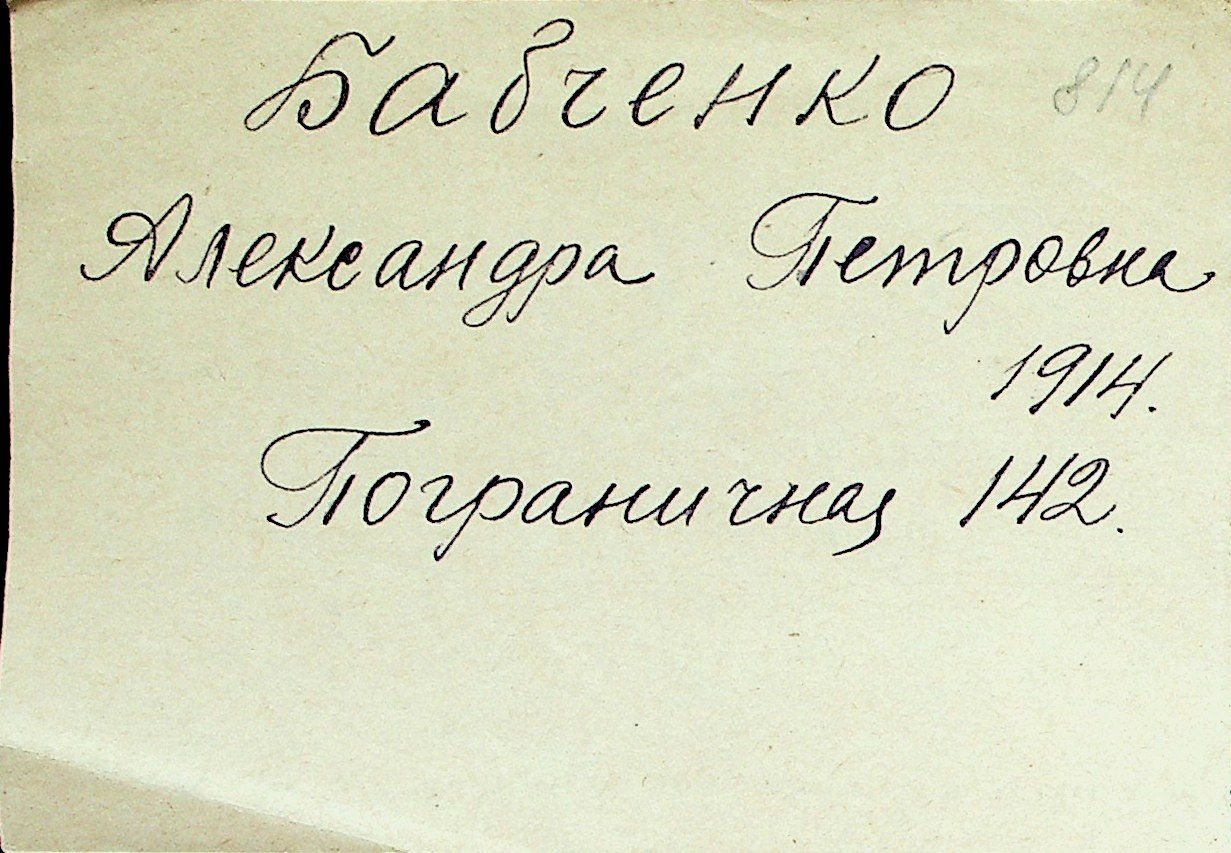 Бабченко 814
Александра Петровна
1914.
Пограничная 142.